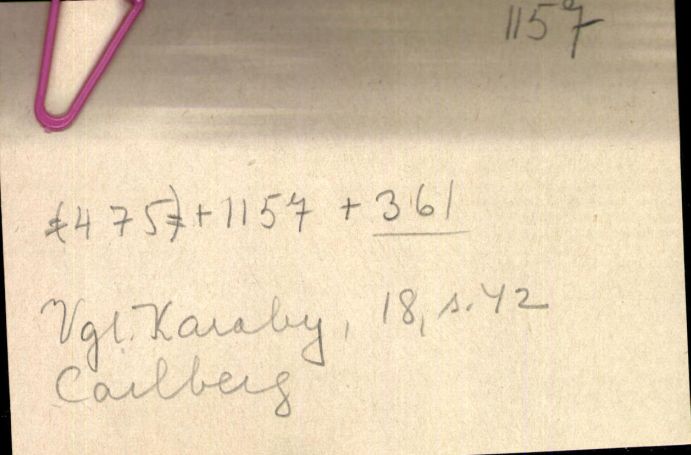 1157
(475)+1157 + 361
Vgl. Karaby, 18, s. 42
Carlberg